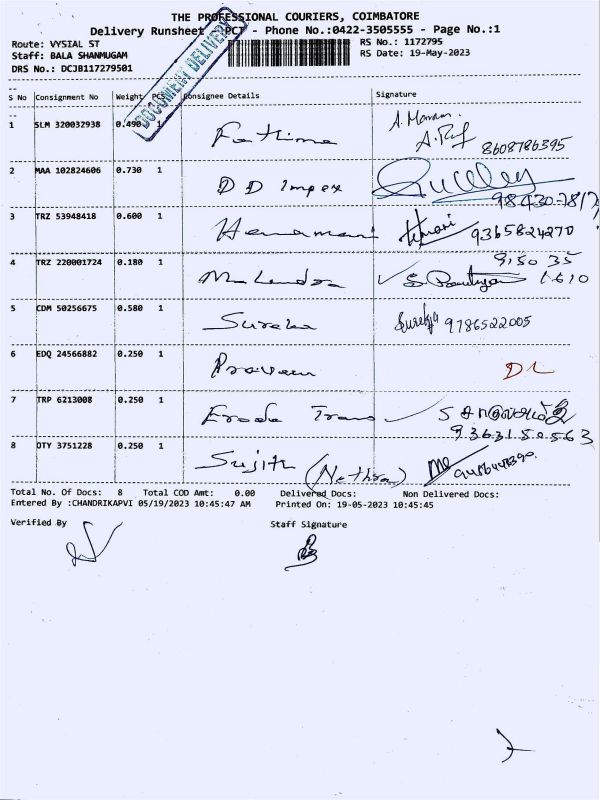 THE PROFESSIONAL COURIERS, COIMBATORE
Delivery Runsheet - PCT - Phone No.:0422-3505555 - Page No.:1
Route: VYSIAL ST
RS No.: 1172795
Staff: BALA SHANMUGAM
RS Date: 19-May-2023
DRS No.: DCJB117279501
DOCUMENT DELIVERY
S No Consignment No Weight PCS Consignee Details Signature
1 SLM 320032938 0.490 1 Fathima 8608786395
2 MAA 102824606 0.730 1 D D Impex
3 TRZ 53948418 0.600 1 9365824270
4 TRZ 220001724 0.180 1 9150 35
1610
5 CDM 50256675 0.580 1 Surekha 9786522005
6 EDQ 24566882 0.250 1 Praveen DL
7 TRP 6213008 0.250 1 Erode Trans
9363150563
8 OTY 3751228 0.250 1 Sujith (Nethra)
Total No. Of Docs: 8 Total COD Amt: 0.00 Delivered Docs: Non Delivered Docs:
Entered By :CHANDRIKAPVI 05/19/2023 10:45:47 AM Printed On: 19-05-2023 10:45:45
Verified By Staff Signature